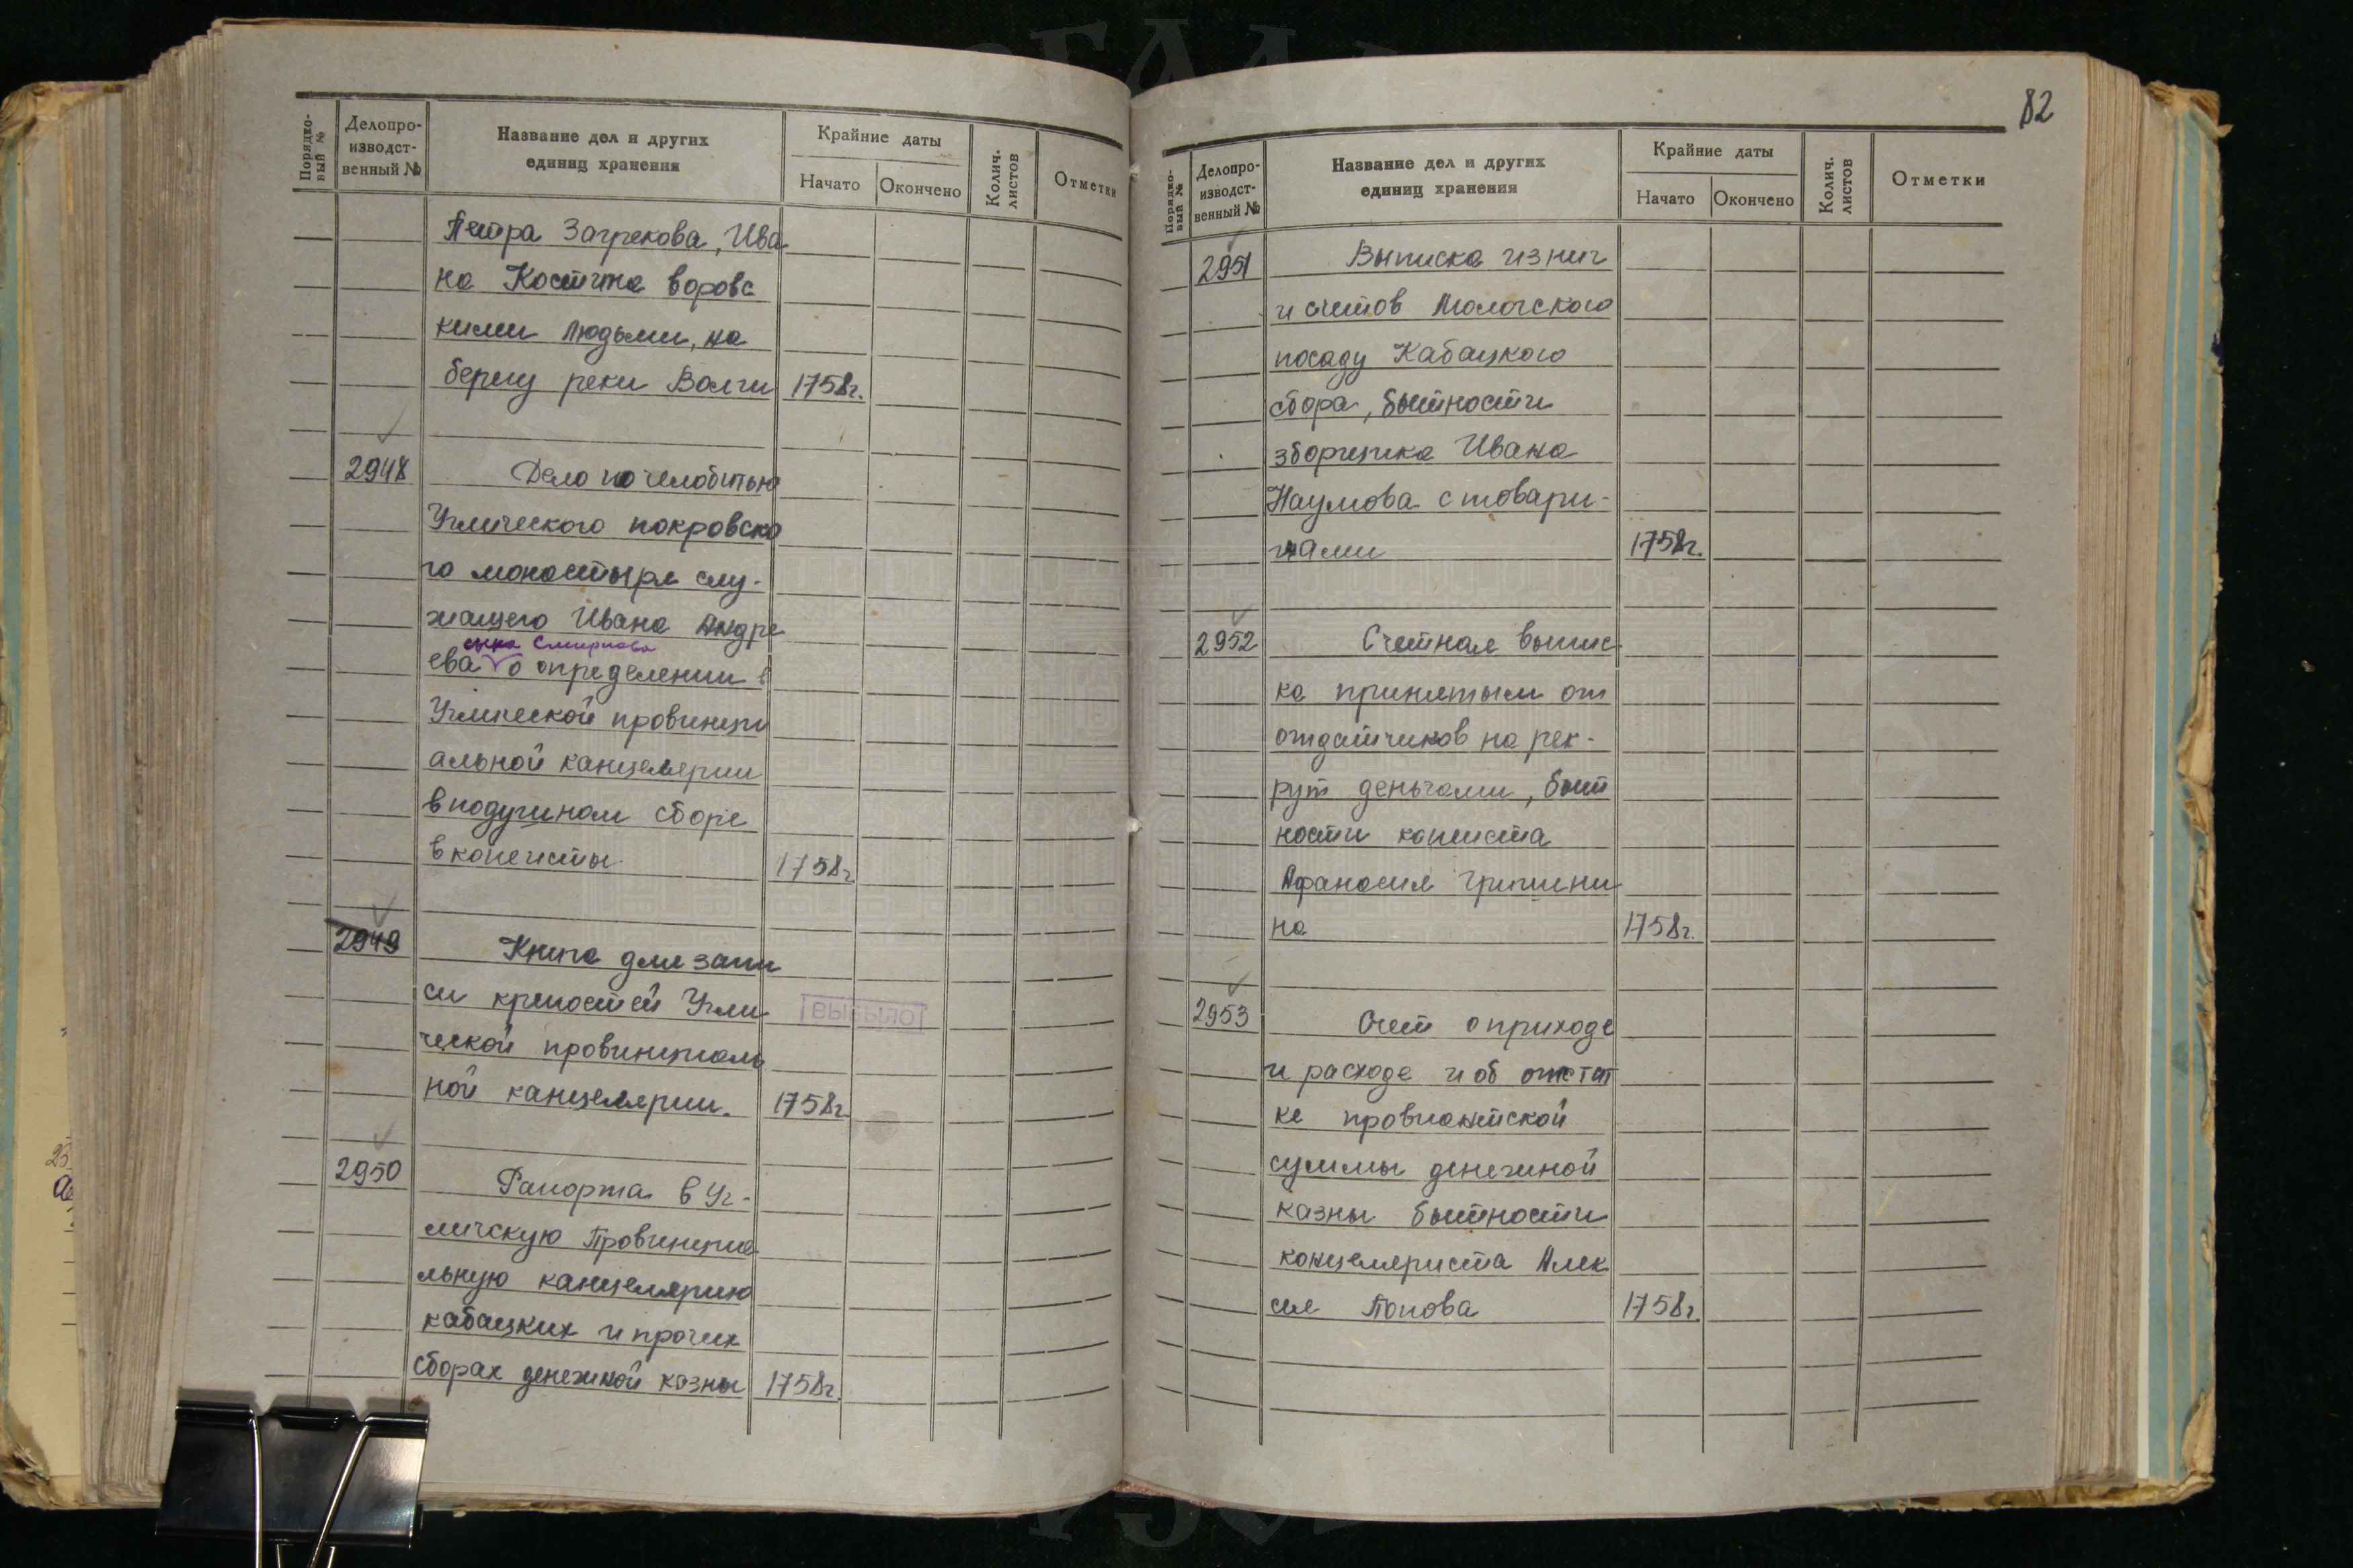 Порядко-
вый №
Делопро-
изводст-
венный №
Название дел и других
единиц хранения
Крайние даты
Начато
Окончено
Колич.
листов
Отметки
Петра Загрекова, Ива
на Костина воровс
кими людьми, на
берегу реки Волги 1758г.
2948 Дело по челобитью
Углического покровско
го монастыря слу-
жащего Ивана Андре
сына Смирнова
ева о определении в
Углической провинци
альной канцелярии
в подушном сборе
в копеисты 1758г.
2949 Книга для запи
си крепостей Угли
ВЫБЫЛО
ческой провинциаль
ной канцелярии. 1758г.
2950 Рапорта в Уг-
личскую Провинциа
льную канцелярию
кабацких и прочих
сборах денежной казны 1758г.
82
Порядко-
вый №
Делопро-
изводст-
венный №
Название дел и других
единиц хранения
Крайние даты
Начато
Окончено
Колич.
листов
Отметки
2951 Выписка из ниг
и счетов Молочского
посаду Кабацкого
сбора, бытности
зборщика Ивана
Наумова с товари-
щами 1758г.
2952 Счетная выпис
ка принятым от
отдатчиков на рек-
рут деньгами, быт
ности кописта
Афанасия Гришини
на 1758г.
2953 Счет о приходе
и расходе и об остат
ке провиантской
суммы денежной
казны бытности
канцеляриста Алек
сея Попова 1758г.